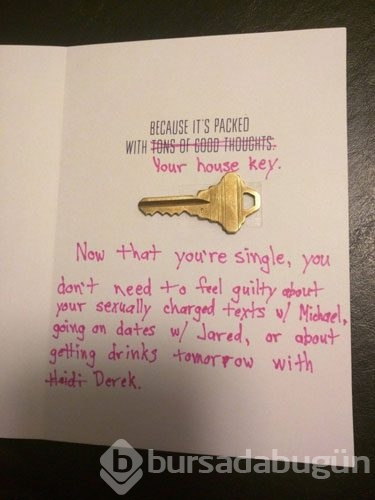 BECAUSE IT'S PACKED
WITH TONS OF GOOD THOUGHTS.
Your house key.
Now that you're single, you
don't need to feel guilty about
your sexually charged texts w/ Michael,
going on dates w/ Jared, or about
getting drinks tomorrow with
Heidi Derek.
b bursadabugün